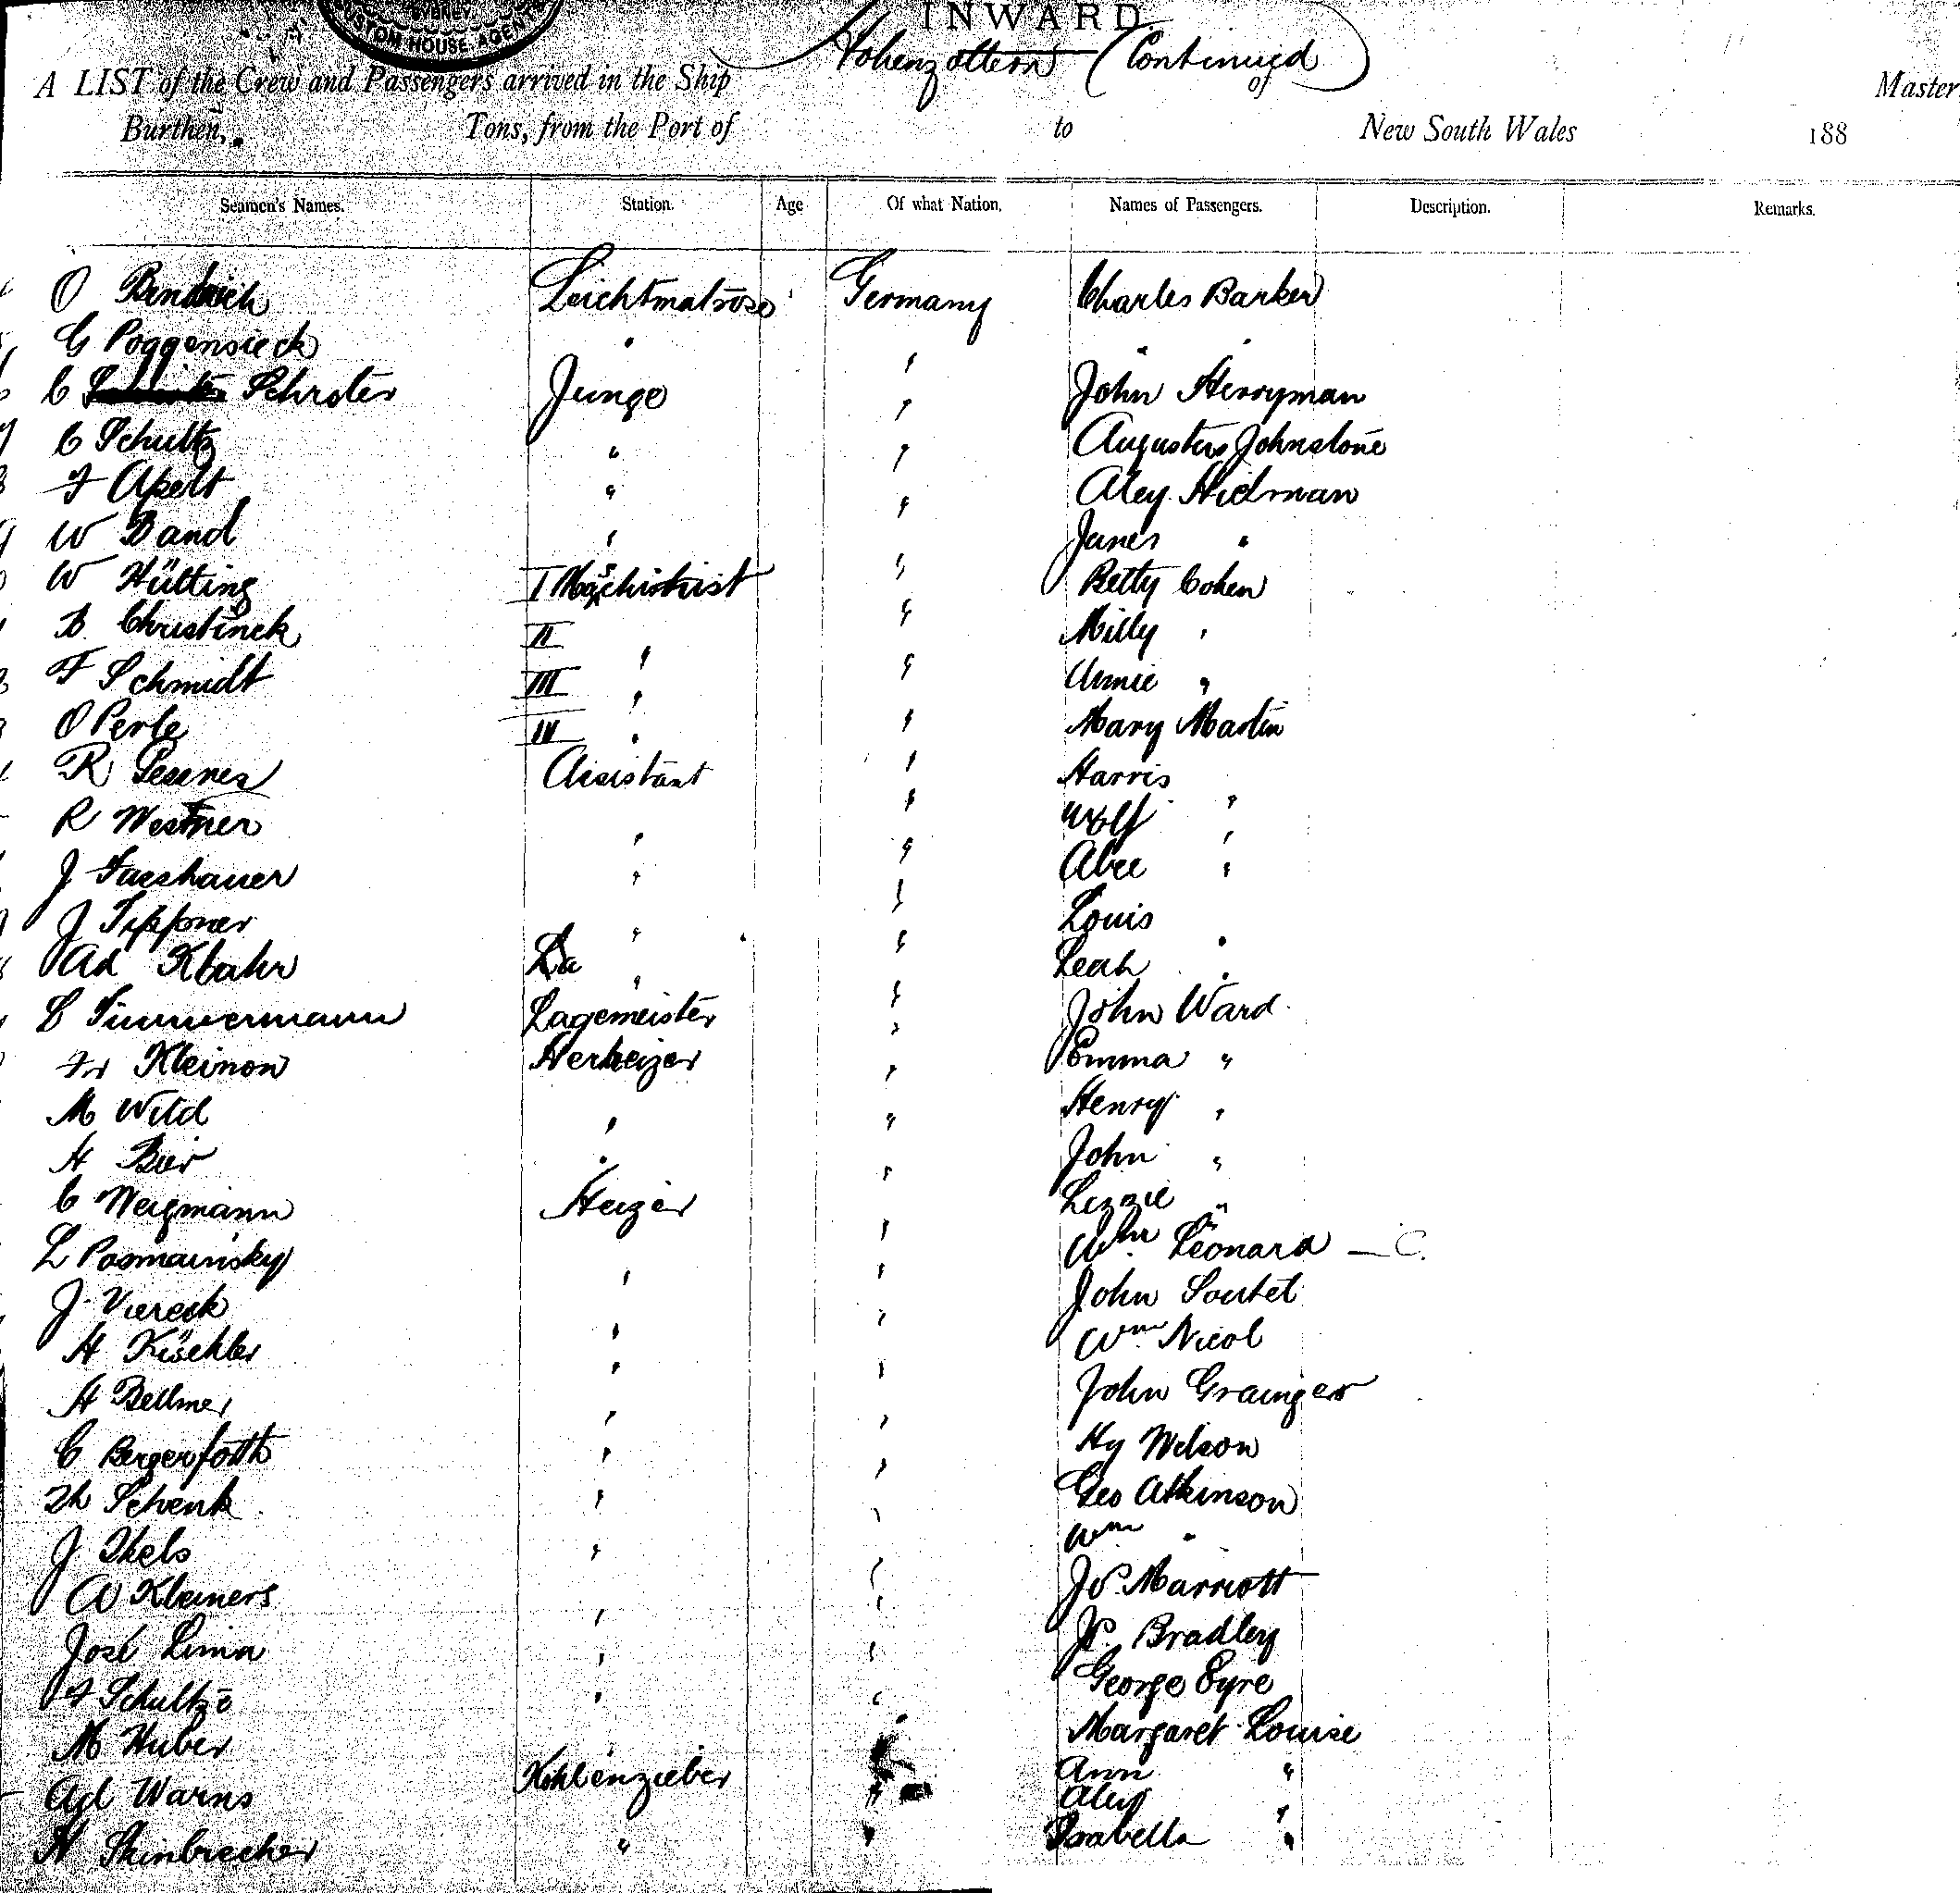 SYDNEY.
CUSTOM HOUSE AGENT
INWARD
Hohenzollern (Continued)
A LIST of the Crew and Passengers arrived in the Ship of Master
Burthen, Tons, from the Port of to New South Wales 188
Seamen's Names. Station. Age Of what Nation. Names of Passengers. Description. Remarks.
O Leichtmatrose Germany Charles Barker
G Poggensieck " " " "
C Schröter Junge " John Herryman
C Schultz " " Augustus Johnstone
F Apelt " " Aley Hidman
W Band " " James "
W Hütting I Maschinist " Betty Cohen
B. Christinck II " " Milly "
F Schmidt III " " Annie "
O Perle IV " " Mary Martin
R Assistant " Harris "
R Westner " " Wolf "
J Fasshauer " " Abee "
J Tippner " " Louis "
Ad Klahr " " Leah "
C Timmermann Lagemeister " John Ward
Fr Kleinon " Emma "
M Wild " " Henry "
H Bier " " John "
C Weigmann Heizer " Lizzie "
L Posmainsky " " Wm Leonard — C.
J. Viereck " " John Soutet
H Küchler " " Wm Nicol
H Bellmer " " John Grainger
C Bergerfoth " " Hy Wilson
Th Schenk " " Geo Atkinson
J Ikels " " Wm "
W Kleiners " " Js. Marriott
José Lima " " Js. Bradley
F Schultze " " George Eyre
M Huber " " Margaret Louise
Ad Warns Kohlenzieher " Ann "
Aley "
H Steinbrecher " " Isabella "